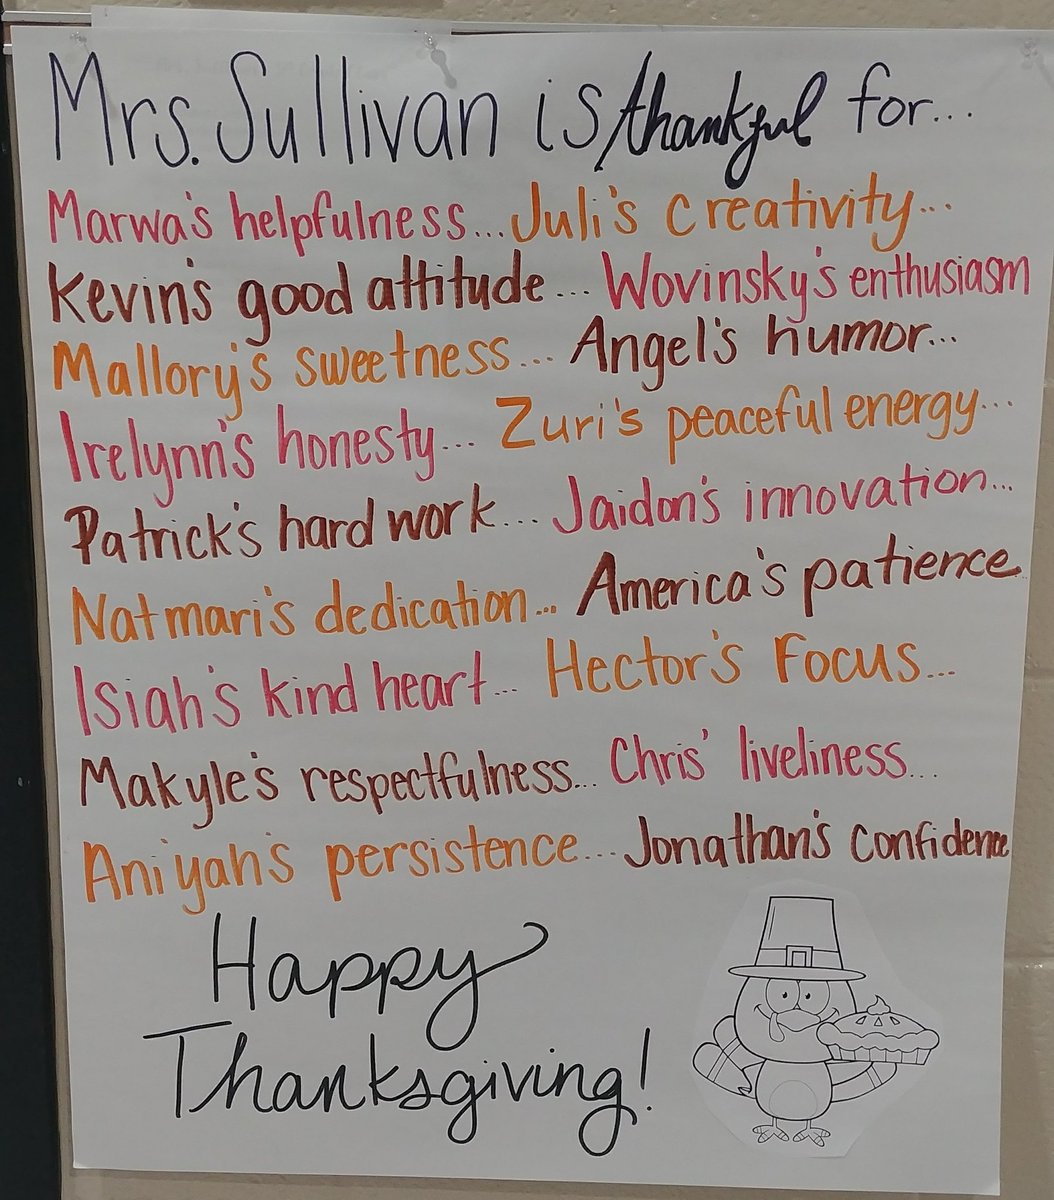 Mrs. Sullivan is thankful for...
Marwa's helpfulness... Juli's creativity...
Kevin's good attitude... Wovinsky's enthusiasm
Mallory's sweetness... Angel's humor...
Irelynn's honesty... Zuri's peaceful energy...
Patrick's hard work... Jaidon's innovation...
Natmari's dedication... America's patience
Isiah's kind heart... Hector's Focus...
Makyle's respectfulness... Chris' liveliness...
Aniyah's persistence... Jonathan's confidence
Happy
Thanksgiving!